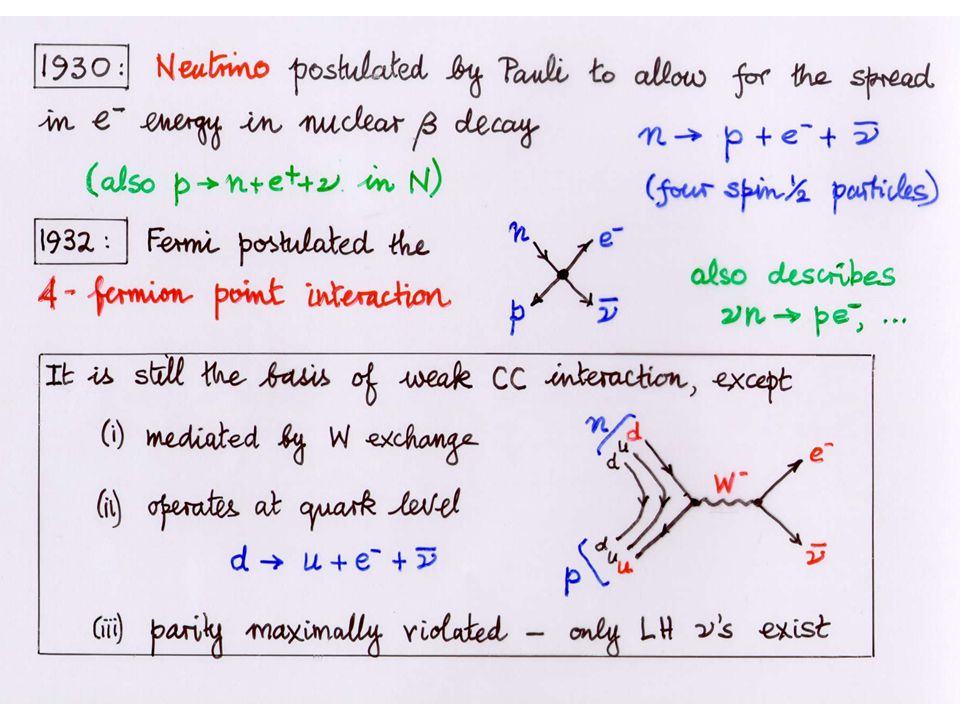 1930: Neutrino postulated by Pauli to allow for the spread
in e⁻ energy in nuclear β decay
n → p + e⁻ + ν̄
(also p→n+e⁺+ν in N)
(four spin ½ particles)
1932: Fermi postulated the
4-fermion point interaction
n e⁻
p ν̄
also describes
νn → pe⁻, ...
It is still the basis of weak CC interaction, except
(i) mediated by W exchange
n d u d
W⁻
e⁻
(ii) operates at quark level
d → u + e⁻ + ν̄
p d u u
ν̄
(iii) parity maximally violated – only LH ν's exist